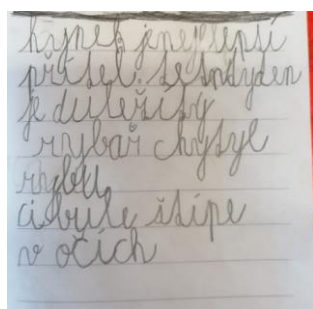 hynek jenejlepší
přítel. Te
je důležitý
rybář chytyl
rybu
cibule štípe
v očích